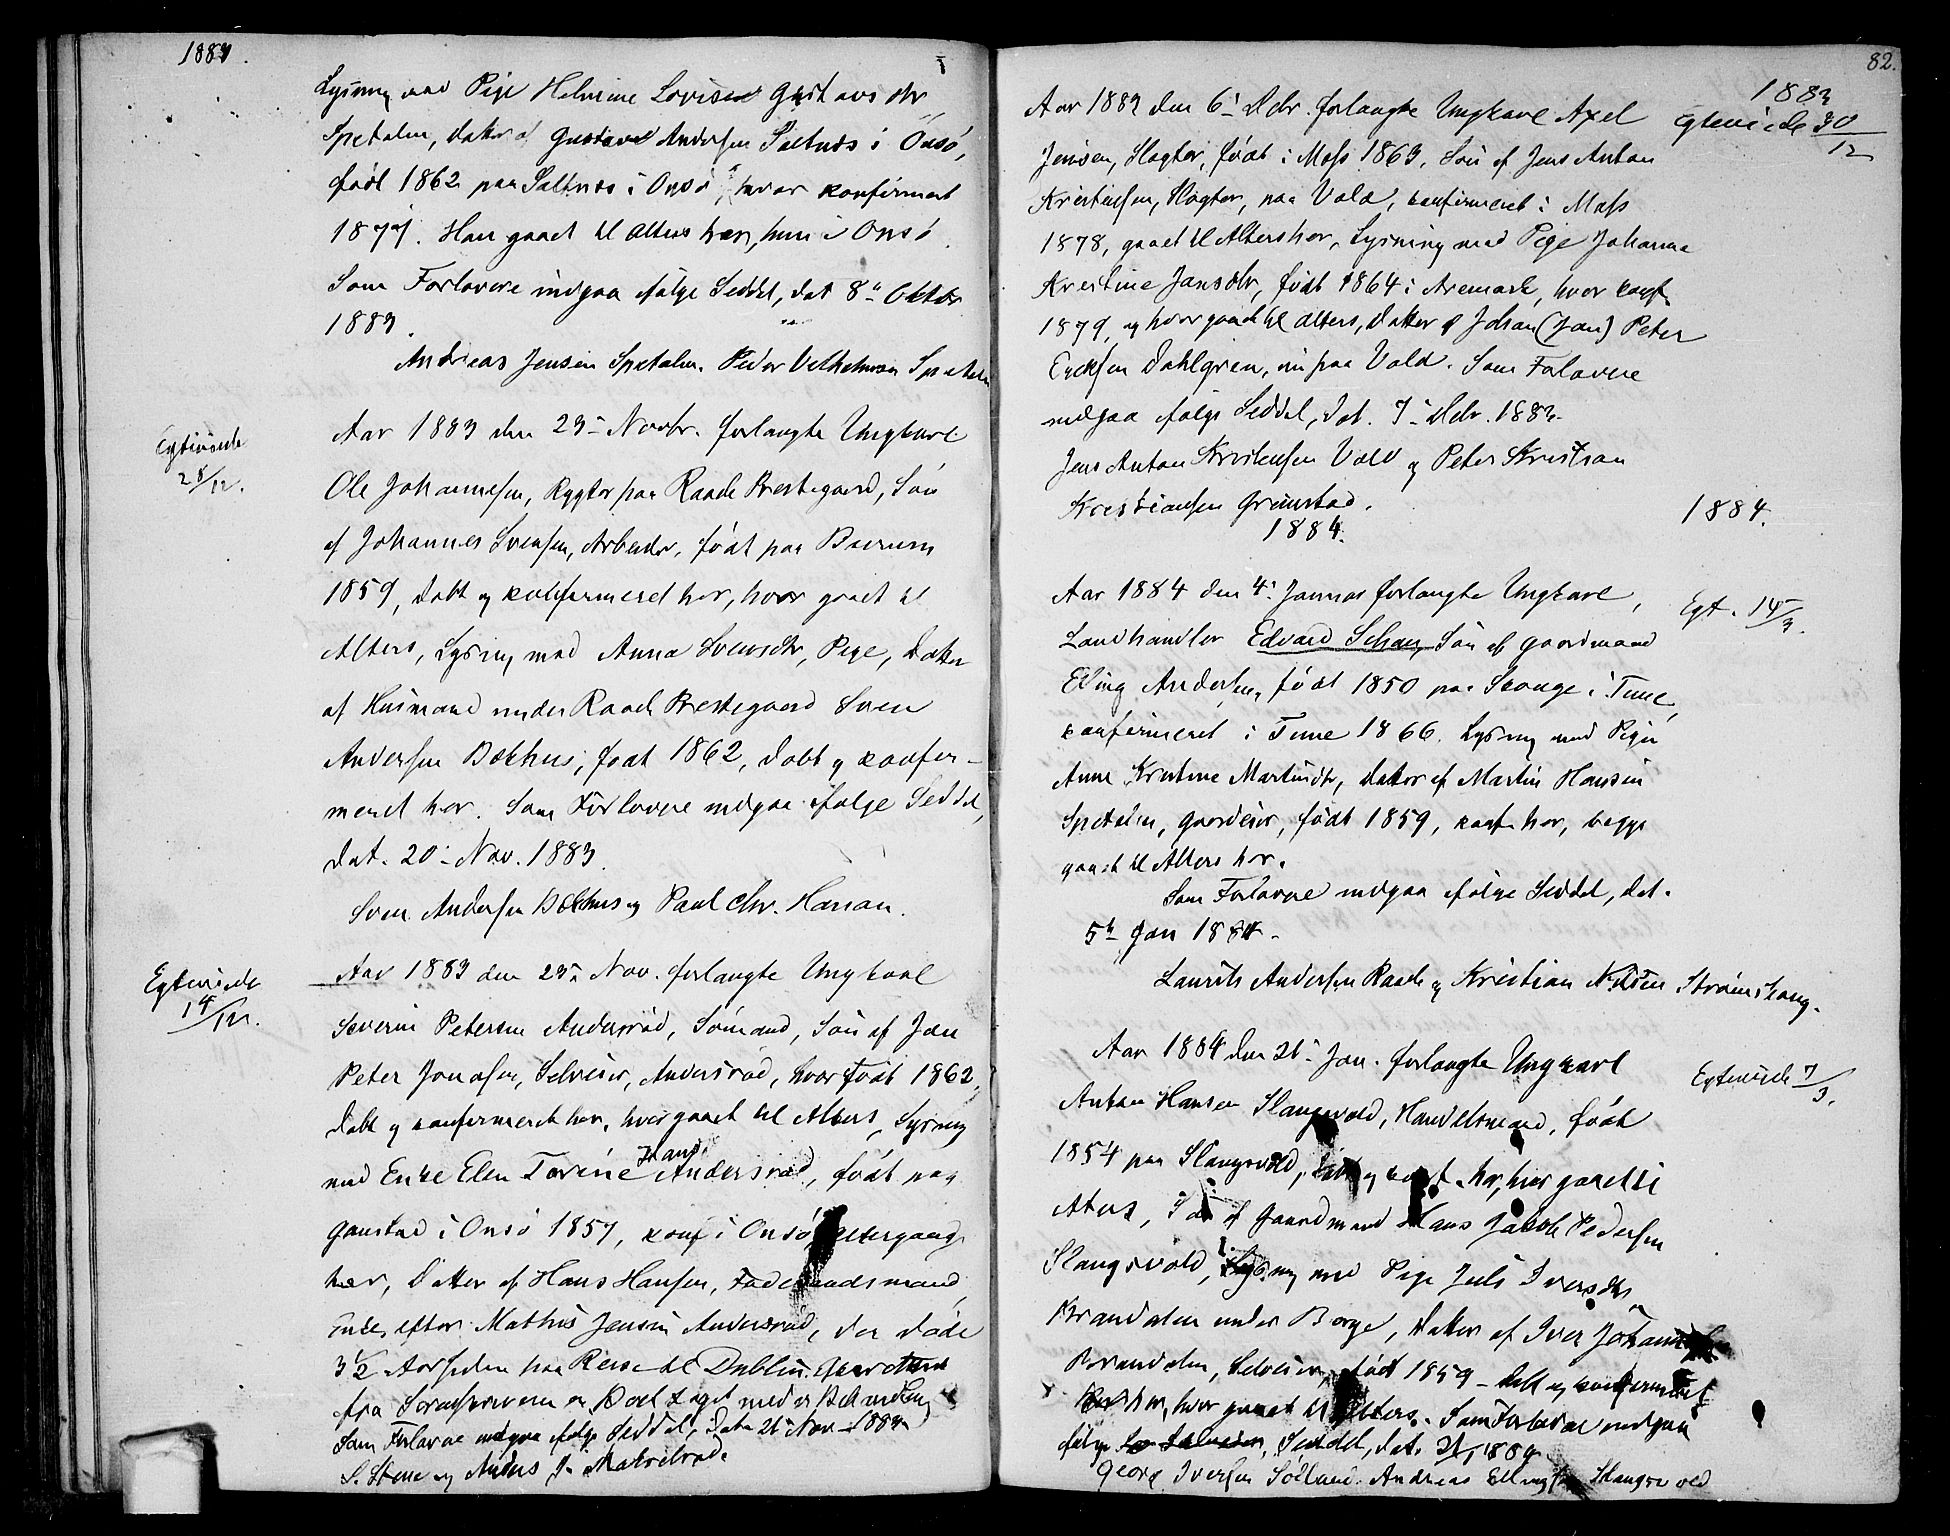 1883.
Lysning med Pige Helmine Lovise Gustavsdtr
Spetalen, Datter af Gustav Andersen Saltnes i Onsö,
född 1862 paa Saltnes i Onsö, hvor konfirmert
1877. Han gaaet til Alters her, hun i Onsö.
Som Forlovere indgaa ifølge Seddel, dat 8de Oktbr
1883.
Andreas Jensen Spetalen. Peder Vilhelmsen Spetalen
Egteviede
28/12.
Aar 1883 den 23de Novbr. forlangte Ungkarl
Ole Johannesen, Røgter paa Raade Prestegaard, Sön
af Johannes Svensen, Arbeider, födt paa Burum
1859, döbt og konfirmeret her, hvor gaaet til
Alters, Lysning med Anna Svensdtr, Pige, Datter
af Husmand under Raade Prestegaard Sven
Andersen Bækhus, födt 1862, döbt og konfir-
meret her. Som Forlovere indgaa ifølge Seddel,
dat. 20de Nov. 1883.
Sven Andersen Bækhus og Paul Chr. Hansen.
Egteviede
14/12.
Aar 1883 den 23de Nov. forlangte Ungkarl
Severin Petersen Andersröd, Sömand, Sön af Jan
Peter Jonasen, Selveier, Andersröd, hvor födt 1862,
döbt og konfirmeret her, hver gaaet til Alters, Lysning
med Enke Elen Torine Hansd. Andersröd, födt paa
Gaustad i Onsö 1857, konf i Onsö, Altergang
her, Datter af Hans Hansen,
Enke efter Mathis Jensen Andersröd, der döde
3 1/2 Aar siden paa Reise til Dublin.
fra Sorenskriveren er
Som Forlovere indgaa ifølge Seddel, Dat. 21de Nov 1883
S. Stene og Anders J.
82.
1883
Egteviede 30/12
Aar 1883 den 6te Debr. forlangte Ungkarl Axel
Jensen, Slagter, födt i Moss 1863, Sön af Jens Anton
Kristensen, Slagter, paa Vold, konfirmeret i Moss
1878, gaaet til Alters her, Lysning med Pige Johanne
Kristine Jansdtr, födt 1864 i Aremark, hvor konf.
1879, og hvor gaaet til Alters, Datter af Johan (Jan) Peter
Ericksen Dahlgren, nu paa Vold. Som Forlovere
indgaa ifølge Seddel, dat. 7de Debr. 1883.
Jens Anton Kristensen Vold og Peter Kristian
Kristiansen Grimstad.
1884.
1884.
Aar 1884 den 4de Januar forlangte Ungkarl,
Egt. 14/3.
Landhandler Edvard Schau, Sön af Gaardmand
Elling Andersen, födt 1850 paa Skouge i Tune,
konfirmeret i Tune 1866. Lysning med Pigen
Anne Kristine Martinsdtr, Datter af Martin Hansen
Spetalen, Gaardeier, födt 1859, konf. her, begge
gaaet til Alters her.
Som Forlovere indgaa ifølge Seddel, dat.
5te Jan 1884.
Laurits Andersen Raade og Kristian Nilsen Strömshaug.
Aar 1884 den 21de Jan. forlangte Ungkarl
Egteviede 7/3.
Anton Hansen Slangsvold, Handelsmand, födt
1854 paa Slangsvold, döbt og konf. her, her gaaet til
Alters, Sön af Gaardmand Hans Jakob Pedersen
Slangsvold, Lysning med Pige Juli Iversdtr.
Brandalen under Borge, Datter af Iver
Brandalen, Selveier, födt 1859 - döbt og konfirmeret
her, hvor gaaet til Alters. Som Forlovere indgaa
ifølge Seddel, dat. 21/1 1884
Georg Iversen Solland. Andreas Ellingsen Slangsvold